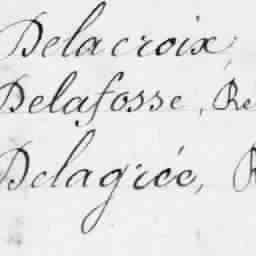 Delacroix,
Delafosse, Re
Delagrée, R